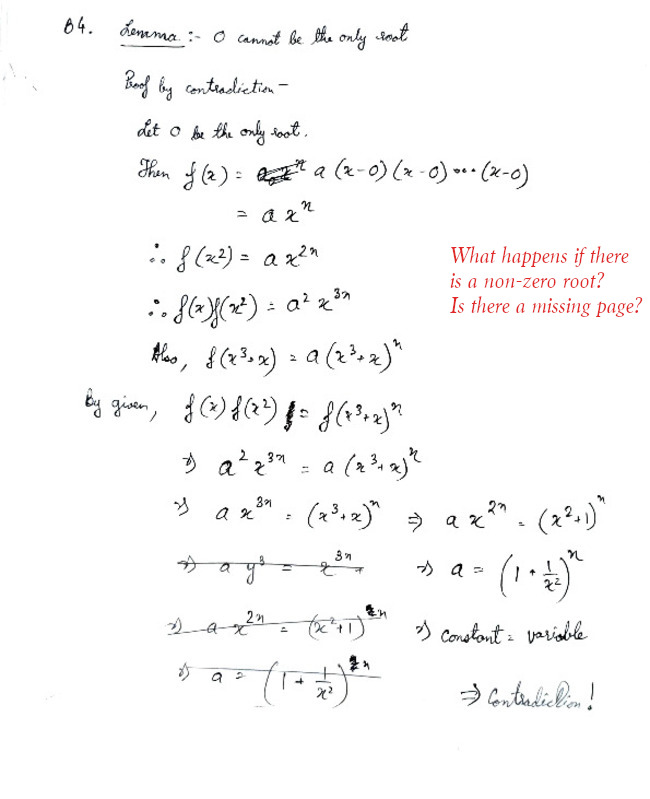 B4. Lemma :- 0 cannot be the only root
Proof by contradiction -
Let 0 be the only root.
Then f(x) = a (x-0) (x-0) ... (x-0)
= a xⁿ
∴ f(x²) = a x²ⁿ
What happens if there
is a non-zero root?
Is there a missing page?
∴ f(x)f(x²) = a² x³ⁿ
Also, f(x³+x) = a(x³+x)ⁿ
By given, f(x) f(x²) = f(x³+x)ⁿ
⇒ a² x³ⁿ = a (x³+x)ⁿ
⇒ a x³ⁿ = (x³+x)ⁿ ⇒ a x²ⁿ = (x²+1)ⁿ
⇒ a y³ = x³ⁿ ⇒ a = (1 + 1/x²)ⁿ
⇒ a x²ⁿ = (x²+1)ⁿ ⇒ constant = variable
⇒ a = (1 + 1/x²)ⁿ
⇒ Contradiction!